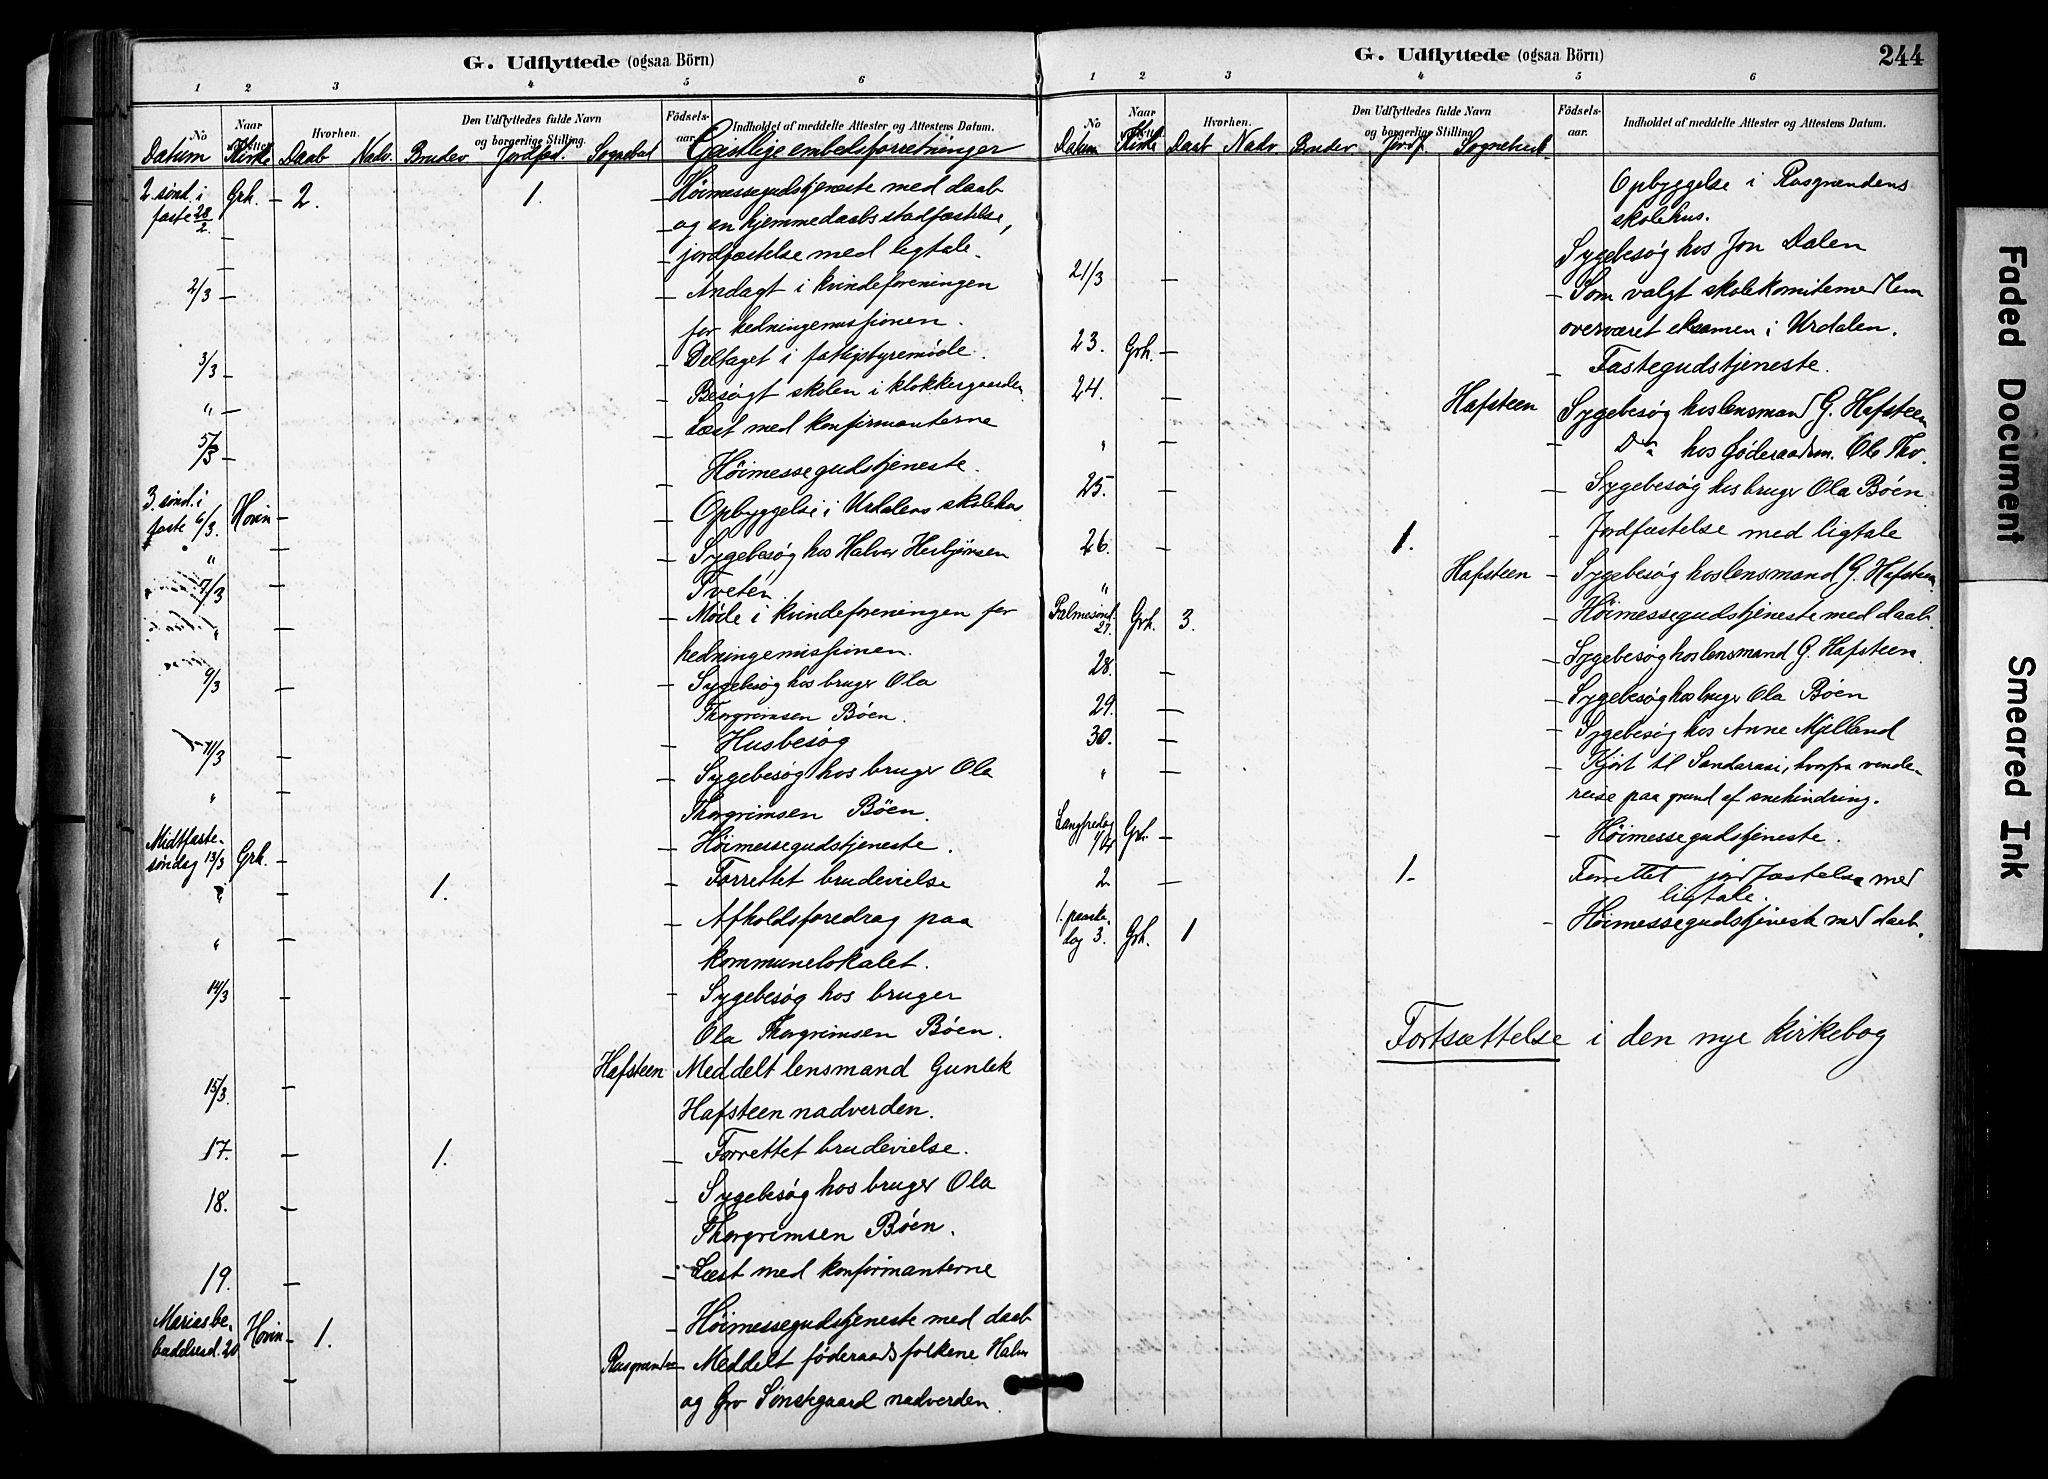 G. Udflyttede (ogsaa Börn)
1 2 3 4 5 6
No Naar Hvorhen. Den Udflyttedes fulde Navn og borgerlige Stilling. Födsels-aar. Indholdet af meddelte Attester og Attestens Datum.
Datum Kirke Daab Nadv. Brudev Jordfæst. Sognebud Geistlige embedsforretninger
2 sönd. i Grh. – 2. 1. Höimessegudstjeneste med daab
faste 28/2. – og en hjemmedaabs stadfæstelse,
– jordfæstelse med ligtale.
2/3 – – Andagt i kvindeforeningen
for hedningemissjonen.
3/3 – – Deltaget i fattigstyremöde.
" – – Besögt skolen i klokkergaarden
5/3 – – Læst med konfirmanterne
3. sönd. i Hovin – Höimessegudstjeneste.
faste 6/3. – Opbyggelse i Urdalens skolehus
" – – Sygebesög hos Halvor Herbjörnsen
Tveten.
7/3 – – Möde i kvindeforeningen for
hedningemissjonen.
9/3 – – Sygebesög hos bruger Ola
Thorgrimsen Böen.
11/3 – – Husbesög
" – – Sygebesög hos bruger Ola
Thorgrimsen Böen.
Midtfaste-
söndag 13/3 Grh. – – Höimessegudstjeneste.
" – 1. – Forrettet brudevielse
" – – Afholdsforedrag paa
kommunelokalet.
14/3 – – Sygebesög hos bruger
Ola Thorgrimsen Böen.
15/3. – Hafsteen Meddelt lensmand Gunlek
Hafsteen nadverden.
17. – 1. – Forrettet brudevielse.
18. – – Sygebesög hos bruger Ola
Thorgrimsen Böen.
19. – – Læst med konfirmanterne
Marias be-
budelsesd. 20 Hovin – 1. – Höimessegudstjeneste med daab
– Rusgrænden – Meddelt föderaadsfolkene Halvor
og Gro Sönstegaard nadverden.
G. Udflyttede (ogsaa Börn) 244
1 2 3 4 5 6
No Naar Hvorhen. Den Udflyttedes fulde Navn og borgerlige Stilling. Födsels-aar. Indholdet af meddelte Attester og Attestens Datum.
Datum Kirke Daab Nadv. Brudev Jordf. Sognebud.
Opbyggelse i Rusgrændens
skolehus.
Sygebesög hos Jon Dalen
21/3 – – Som valgt skolekomitemedlem
overværet eksamen i Urdalen.
23. Grh. – – Fastegudstjeneste.
24. – Hafsteen Sygebesög hos lensmand G. Hafsteen
" – – Do hos föderaadsm. Ole Tho.
25. – – Sygebesög hos bruger Ola Böen
26. – 1. – Jordfæstelse med ligtale
" Hafsteen – Sygebesög hos lensmand G. Hafsteen
Palmesönd.
27. Grh. 3. – Höimessegudstjeneste med daab.
28. – – Sygebesög hos lensmand G. Hafsteen
29. – – Sygebesög hos bruger Ola Böen
30. – – Sygebesög hos Anne Mjelland
" – – Kjört til Sandaraai, hvorfra vende-
reise paa grund af snehindring.
Langfredag
1/4 Grh. – – Höimessegudstjeneste.
2 – 1. – Forrettet jordfæstelse med
ligtale.
1. paaske-
dag 3. Grh. 1 – Höimessegudstjeneste med daab.
Fortsættelse i den nye kirkebog
Faded Document
Smeared Ink